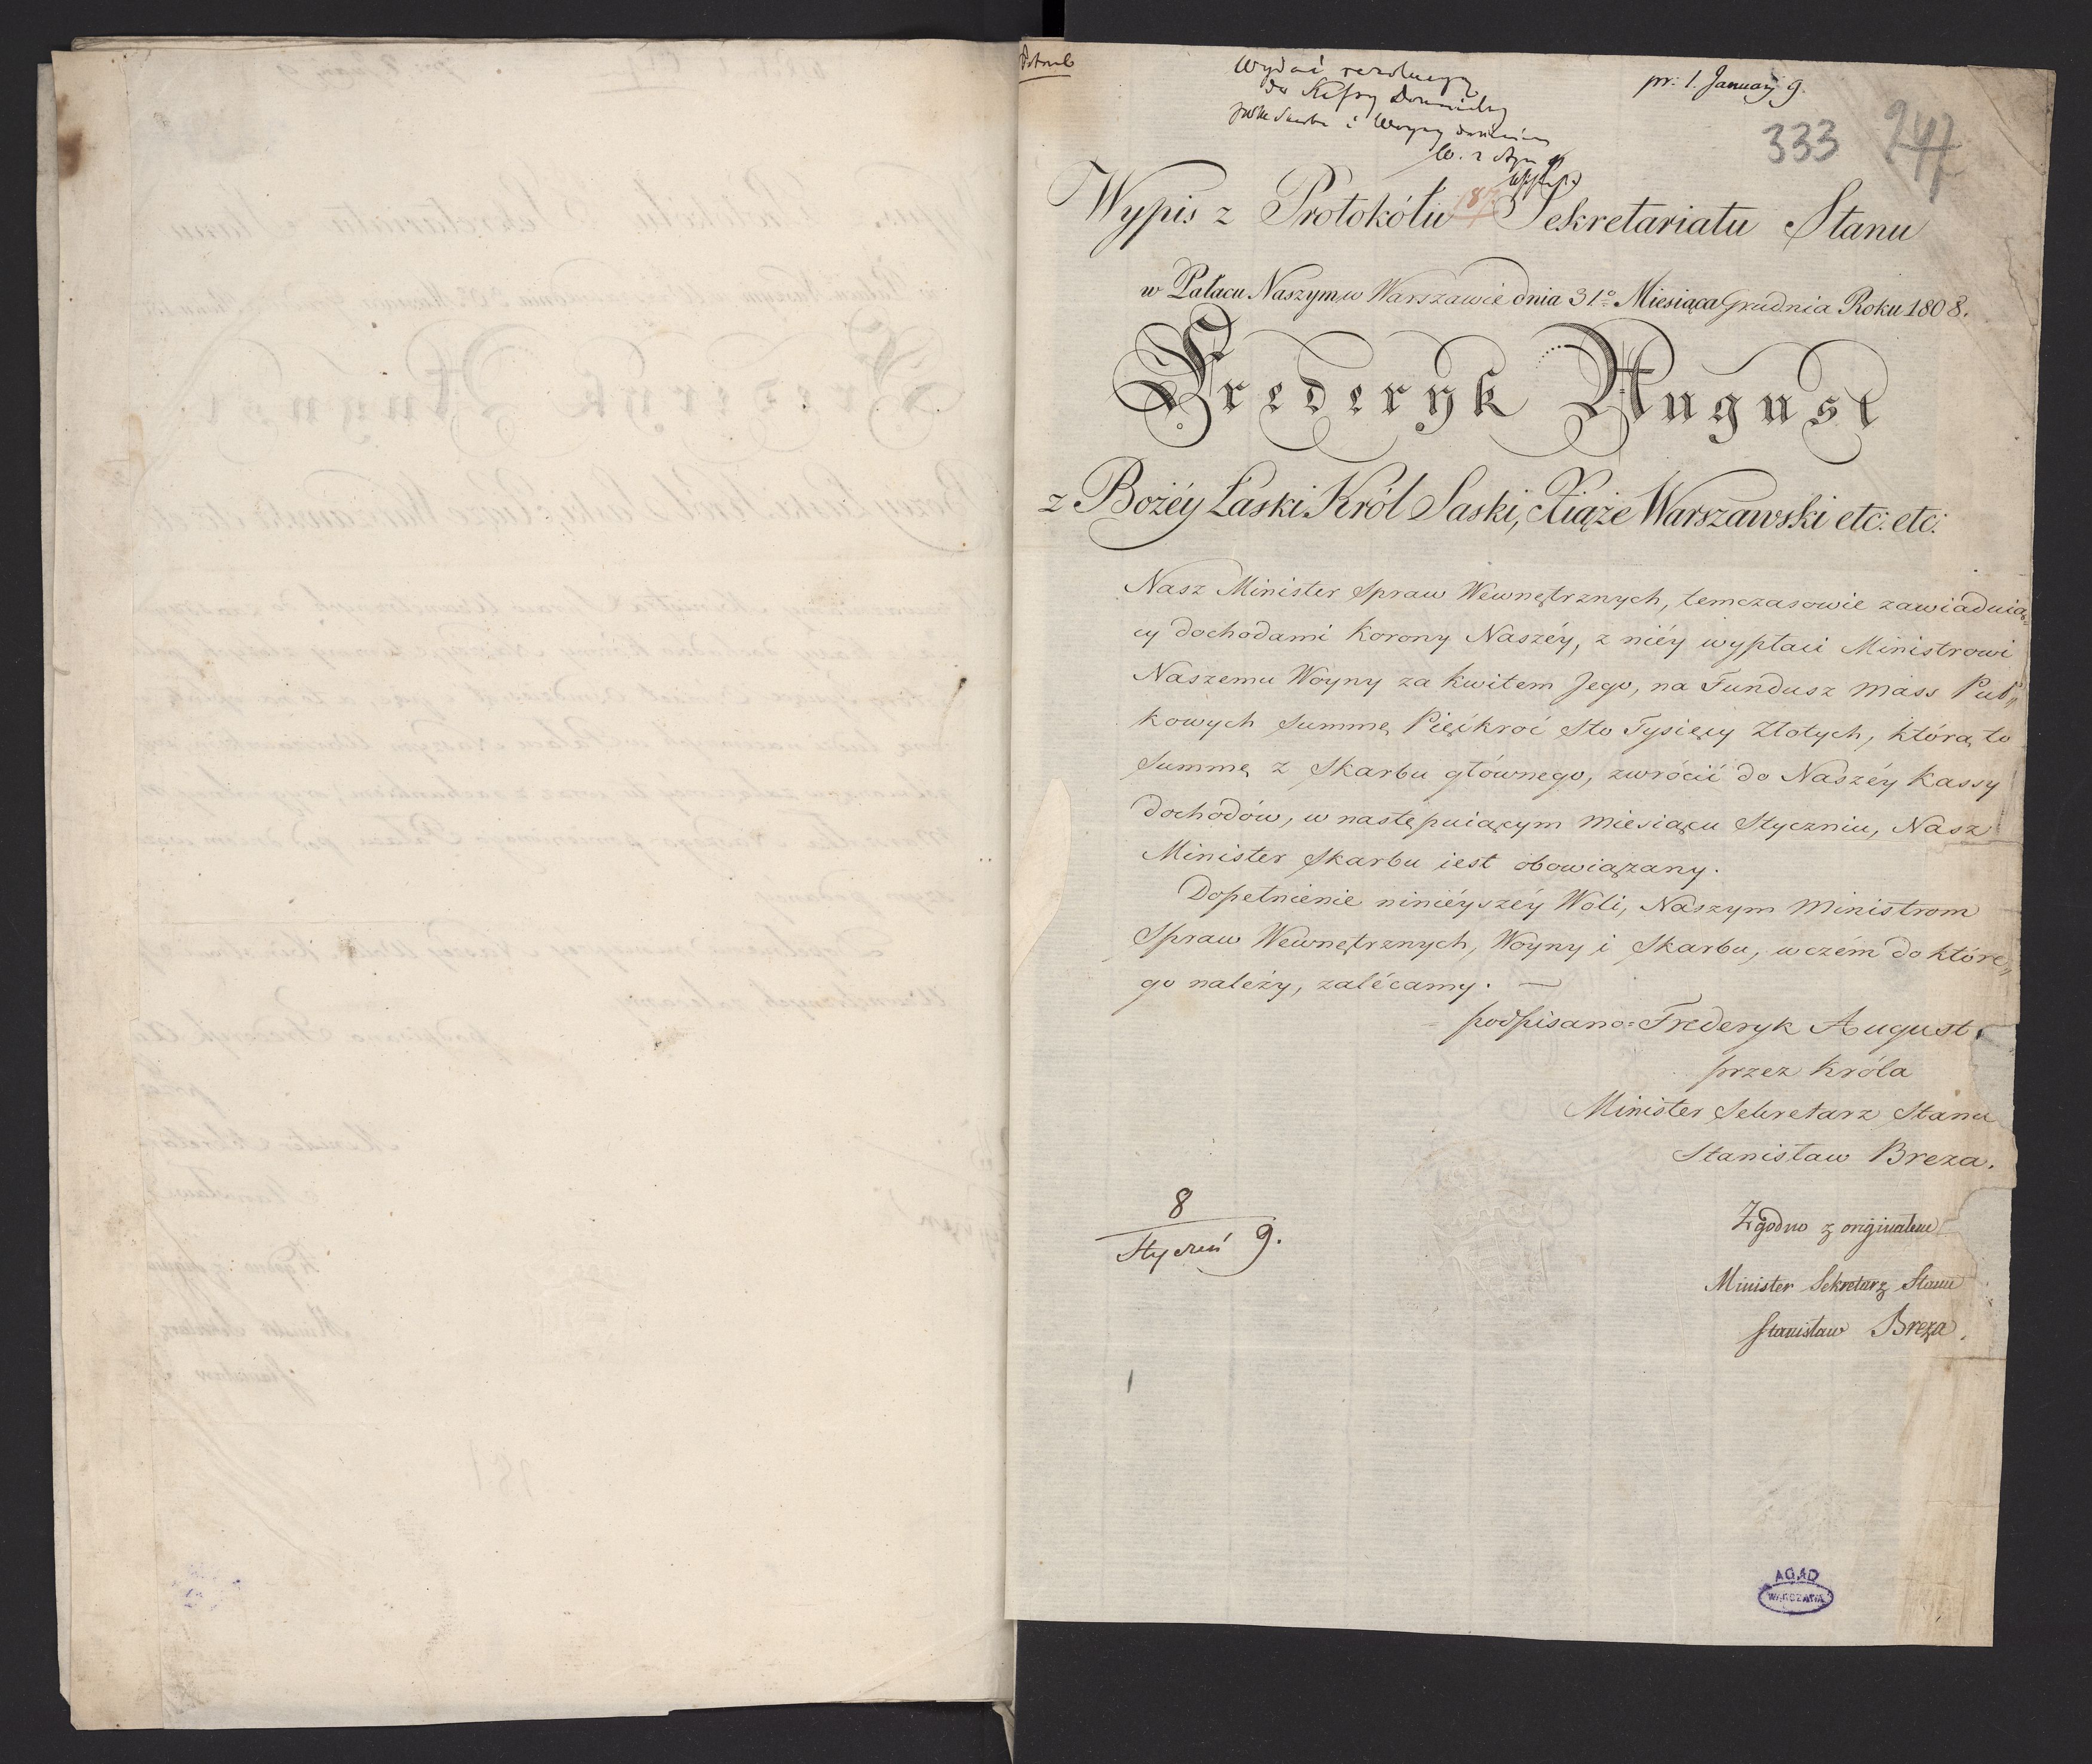 Wydać rezolucyą
do Kassy
pr: 1. January 9.
333 247
187
Wypis z Protokółu Sekretariatu Stanu
w Pałacu Naszym w Warszawie dnia 31º Miesiąca Grudnia Roku 1808.
Frederyk August
z Bożéy Łaski Król Saski, Xiąże Warszawski etc: etc:
Nasz Minister Spraw Wewnętrznych, temczasowie zawiaduią„
cy dochodami Korony Naszéy, z niéy wypłaci Ministrowi
Naszemu Woyny za kwitem Jego, na Fundusz Mass Puł„
kowych Summę Pięćkroć Sto Tysięcy Złotych, którą to
Summę z Skarbu głównego, zwrócić do Naszéy Kassy
dochodów, w następuiącym Miesiącu Styczniu, Nasz
Minister Skarbu iest obowiązany.
Dopełnienie ninieyszéy Woli, Naszym Ministrom
Spraw Wewnętrznych, Woyny i Skarbu, w czém do które„
go należy, zalécamy. —
podpisano = Frederyk August,
przez Króla
Minister Sekretarz Stanu
Stanisław Breza.
8
Styczeń 9.
Zgodno z originałem
Minister Sekretarz Stanu
Stanisław Breza.
AGAD
WARSZAWA